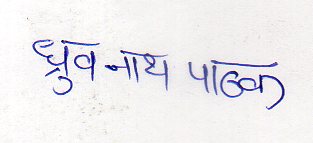 ध्रुव नाथ पाठक